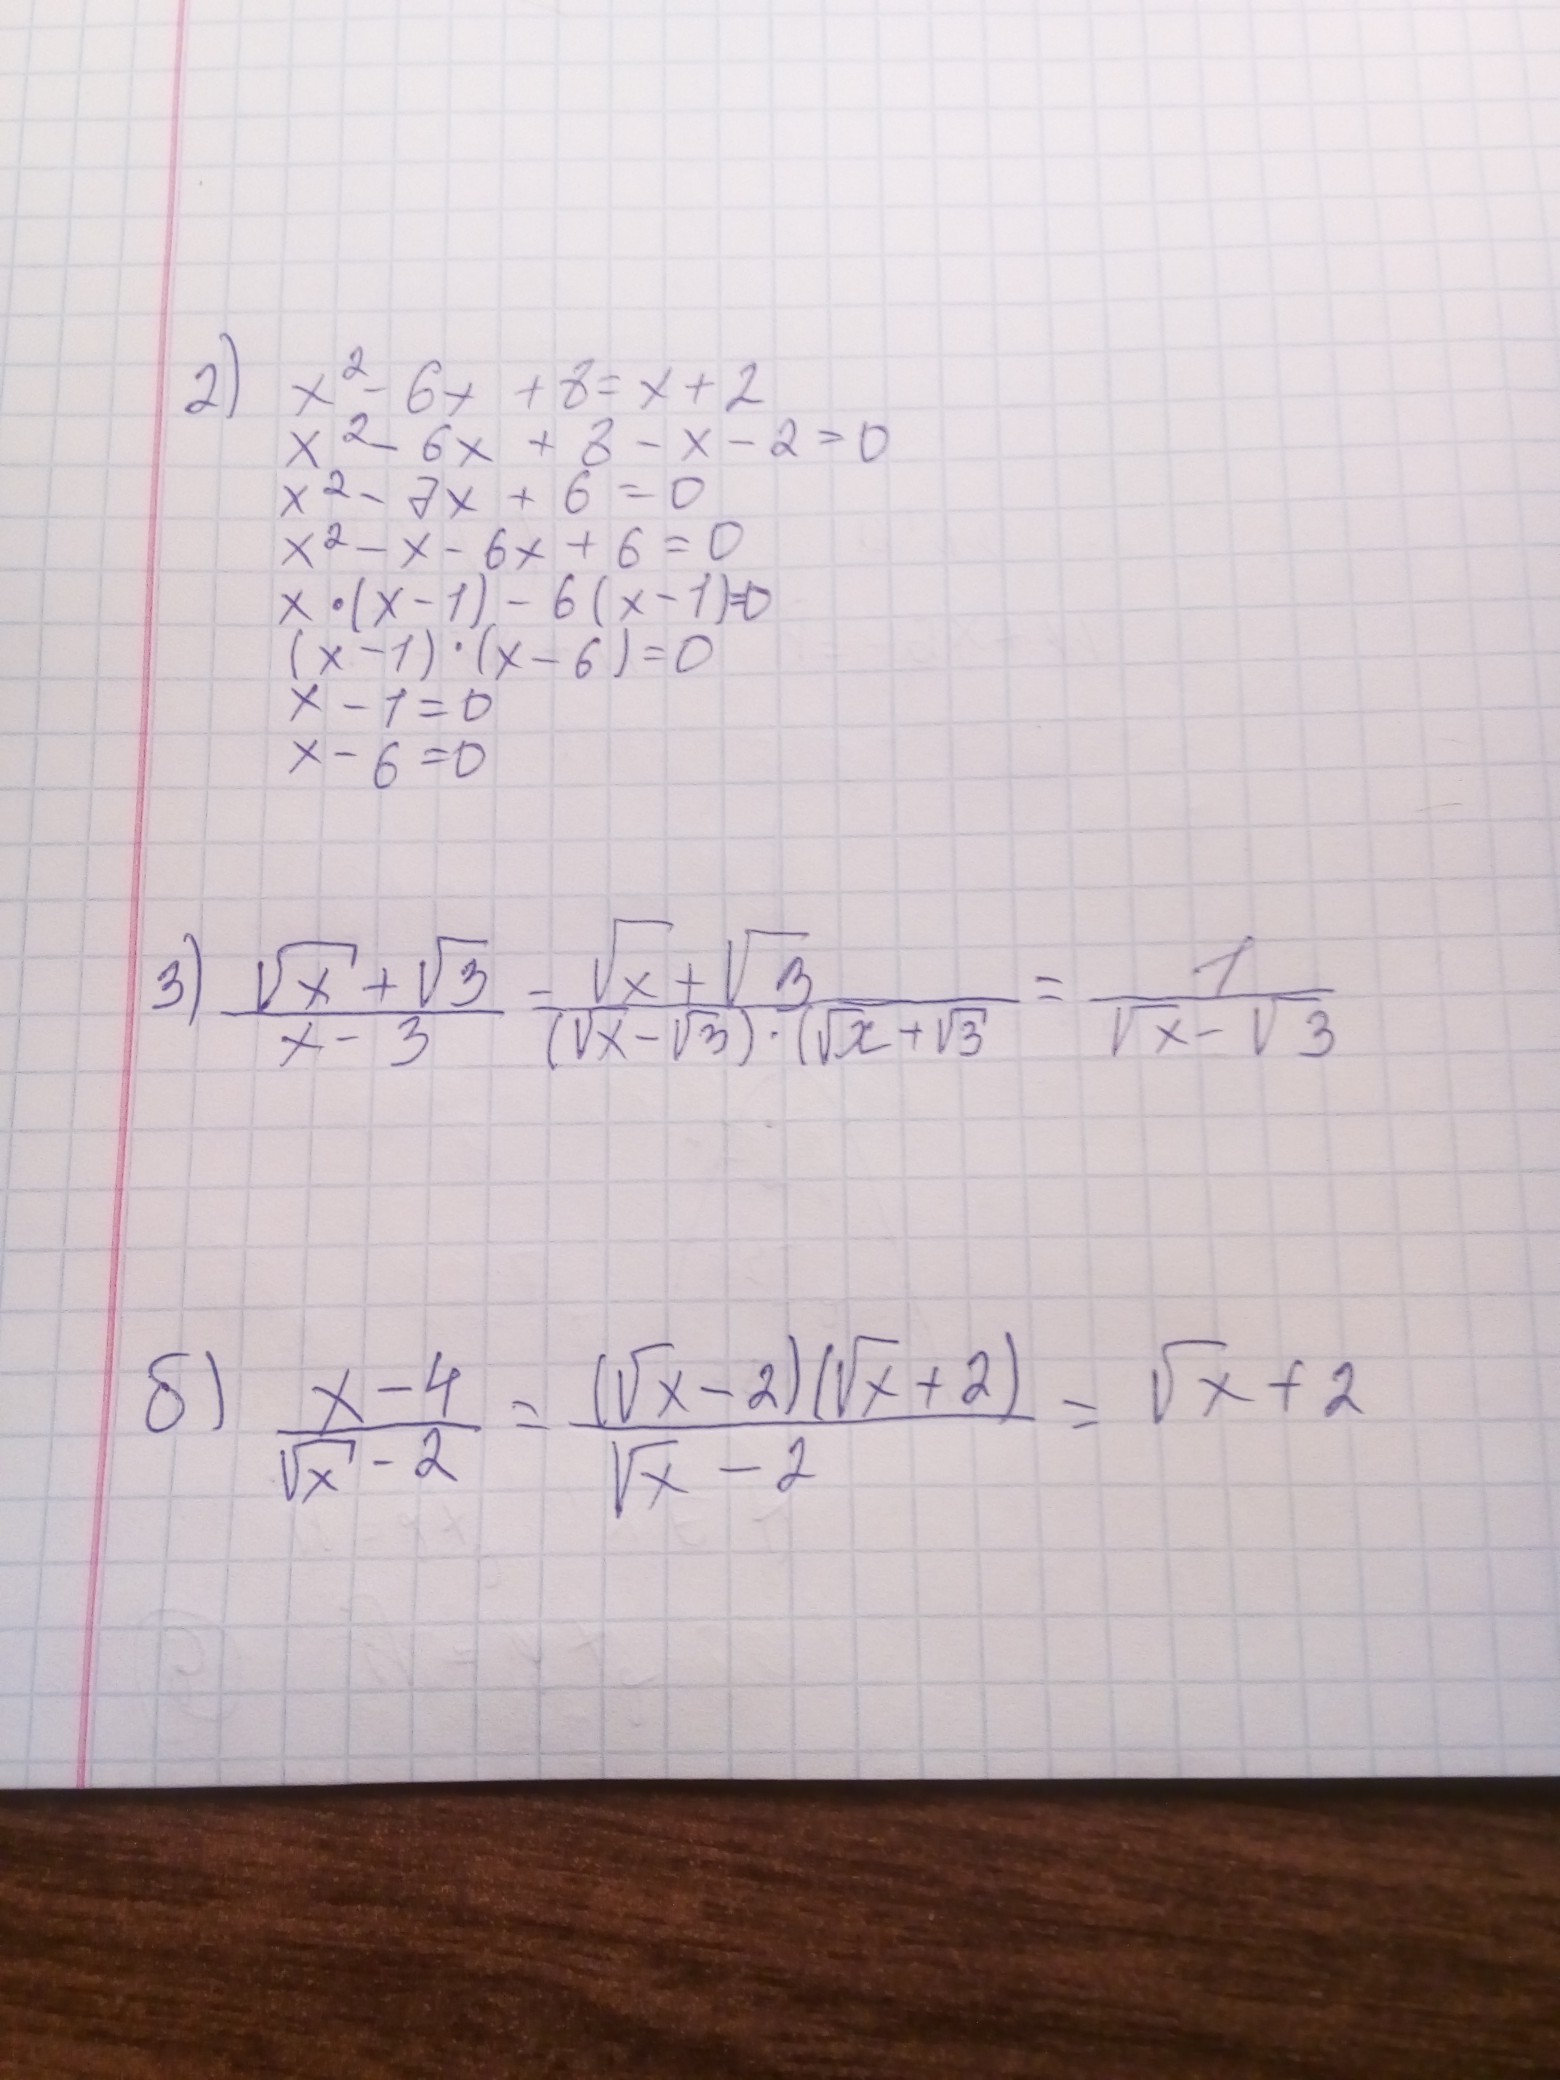 2) x² - 6x + 8 = x + 2
x² - 6x + 8 - x - 2 = 0
x² - 7x + 6 = 0
x² - x - 6x + 6 = 0
x • (x - 1) - 6 (x - 1) = 0
(x - 1) · (x - 6) = 0
x - 1 = 0
x - 6 = 0
3) (√x + √3)/(x - 3) = (√x + √3)/((√x - √3) · (√x + √3) = 1/(√x - √3)
б) (x - 4)/(√x - 2) = ((√x - 2)(√x + 2))/(√x - 2) = √x + 2